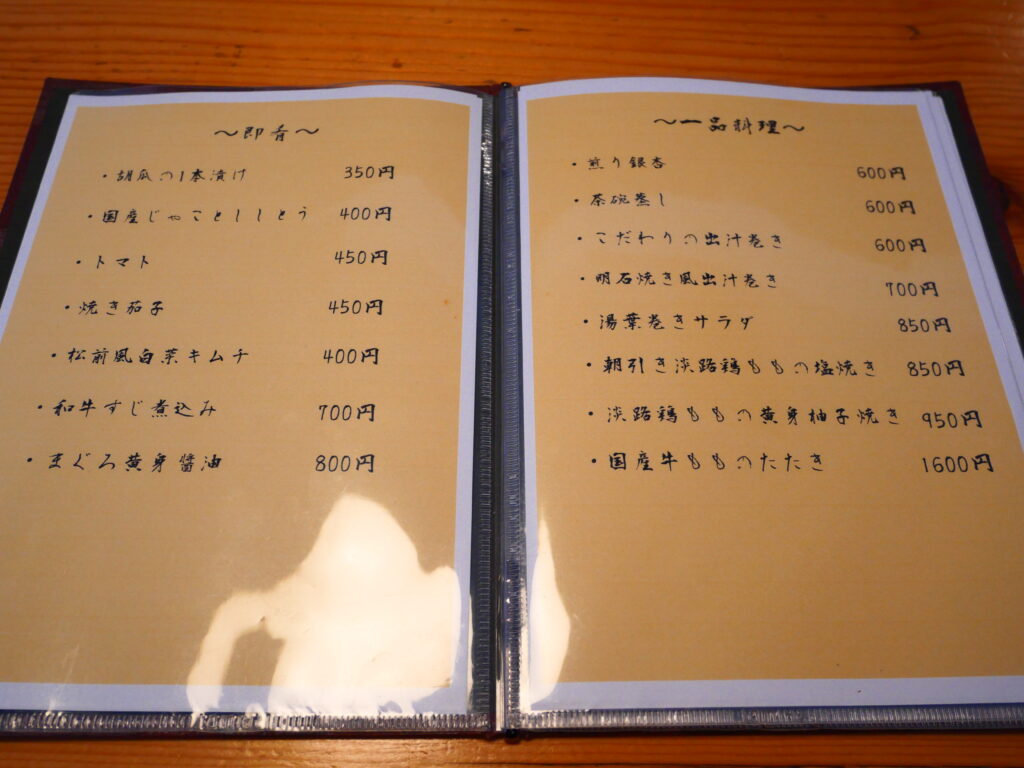 〜即肴〜
・胡瓜の1本漬け 350円
・国産じゃことししとう 400円
・トマト 450円
・焼き茄子 450円
・松前風白菜キムチ 400円
・和牛すじ煮込み 700円
・まぐろ黄身醤油 800円
〜一品料理〜
・煎り銀杏 600円
・茶碗蒸し 600円
・こだわりの出汁巻き 600円
・明石焼き風出汁巻き 700円
・湯葉巻きサラダ 850円
・朝引き淡路鶏ももの塩焼き 850円
・淡路鶏ももの黄身柚子焼き 950円
・国産牛もものたたき 1600円